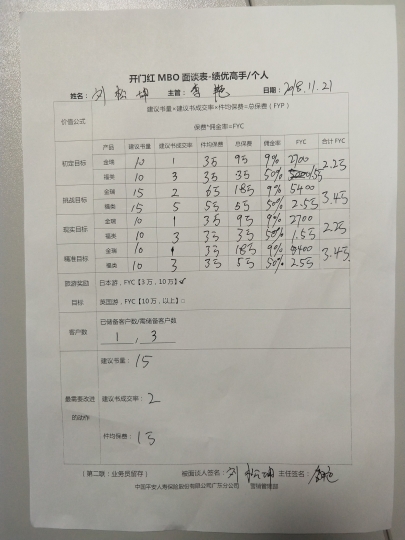 开门红 MBO 面谈表-绩优高手/个人
姓名： 刘松坤 主管： 李艳 日期：2018.11.21
价值公式
建议书量*建议书成交率*件均保费=总保费（FYP）
保费*佣金率=FYC
产品 建议书量 建议书成交率 件均保费 总保费 佣金率 FYC 合计 FYC
初定目标 金瑞 10 1 3万 9万 9% 2700 2.2万
福类 10 3 3万 3万 50%
挑战目标 金瑞 15 2 6万 18万 9% 5400 3.4万
福类 15 5 5万 5万 50% 2.5万
现实目标 金瑞 10 1 3万 9万 9% 2700 2.2万
福类 10 3 3万 3万 50% 1.5万
精准目标 金瑞 10 3万 18万 9% 5400 3.4万
福类 10 3 3万 5万 50% 2.5万
旅游奖励目标
日本游，FYC【3 万，10 万】✓
英国游，FYC【10 万，以上】□
客户数
已储备客户数/需储备客户数
1 ， 3
最需要改进的动作
建议书量：15
建议书成交率：2
件均保费：1万
（第二联：业务员留存） 被面谈人签名：刘松坤 主任签名：
中国平安人寿保险股份有限公司广东分公司 营销管理部